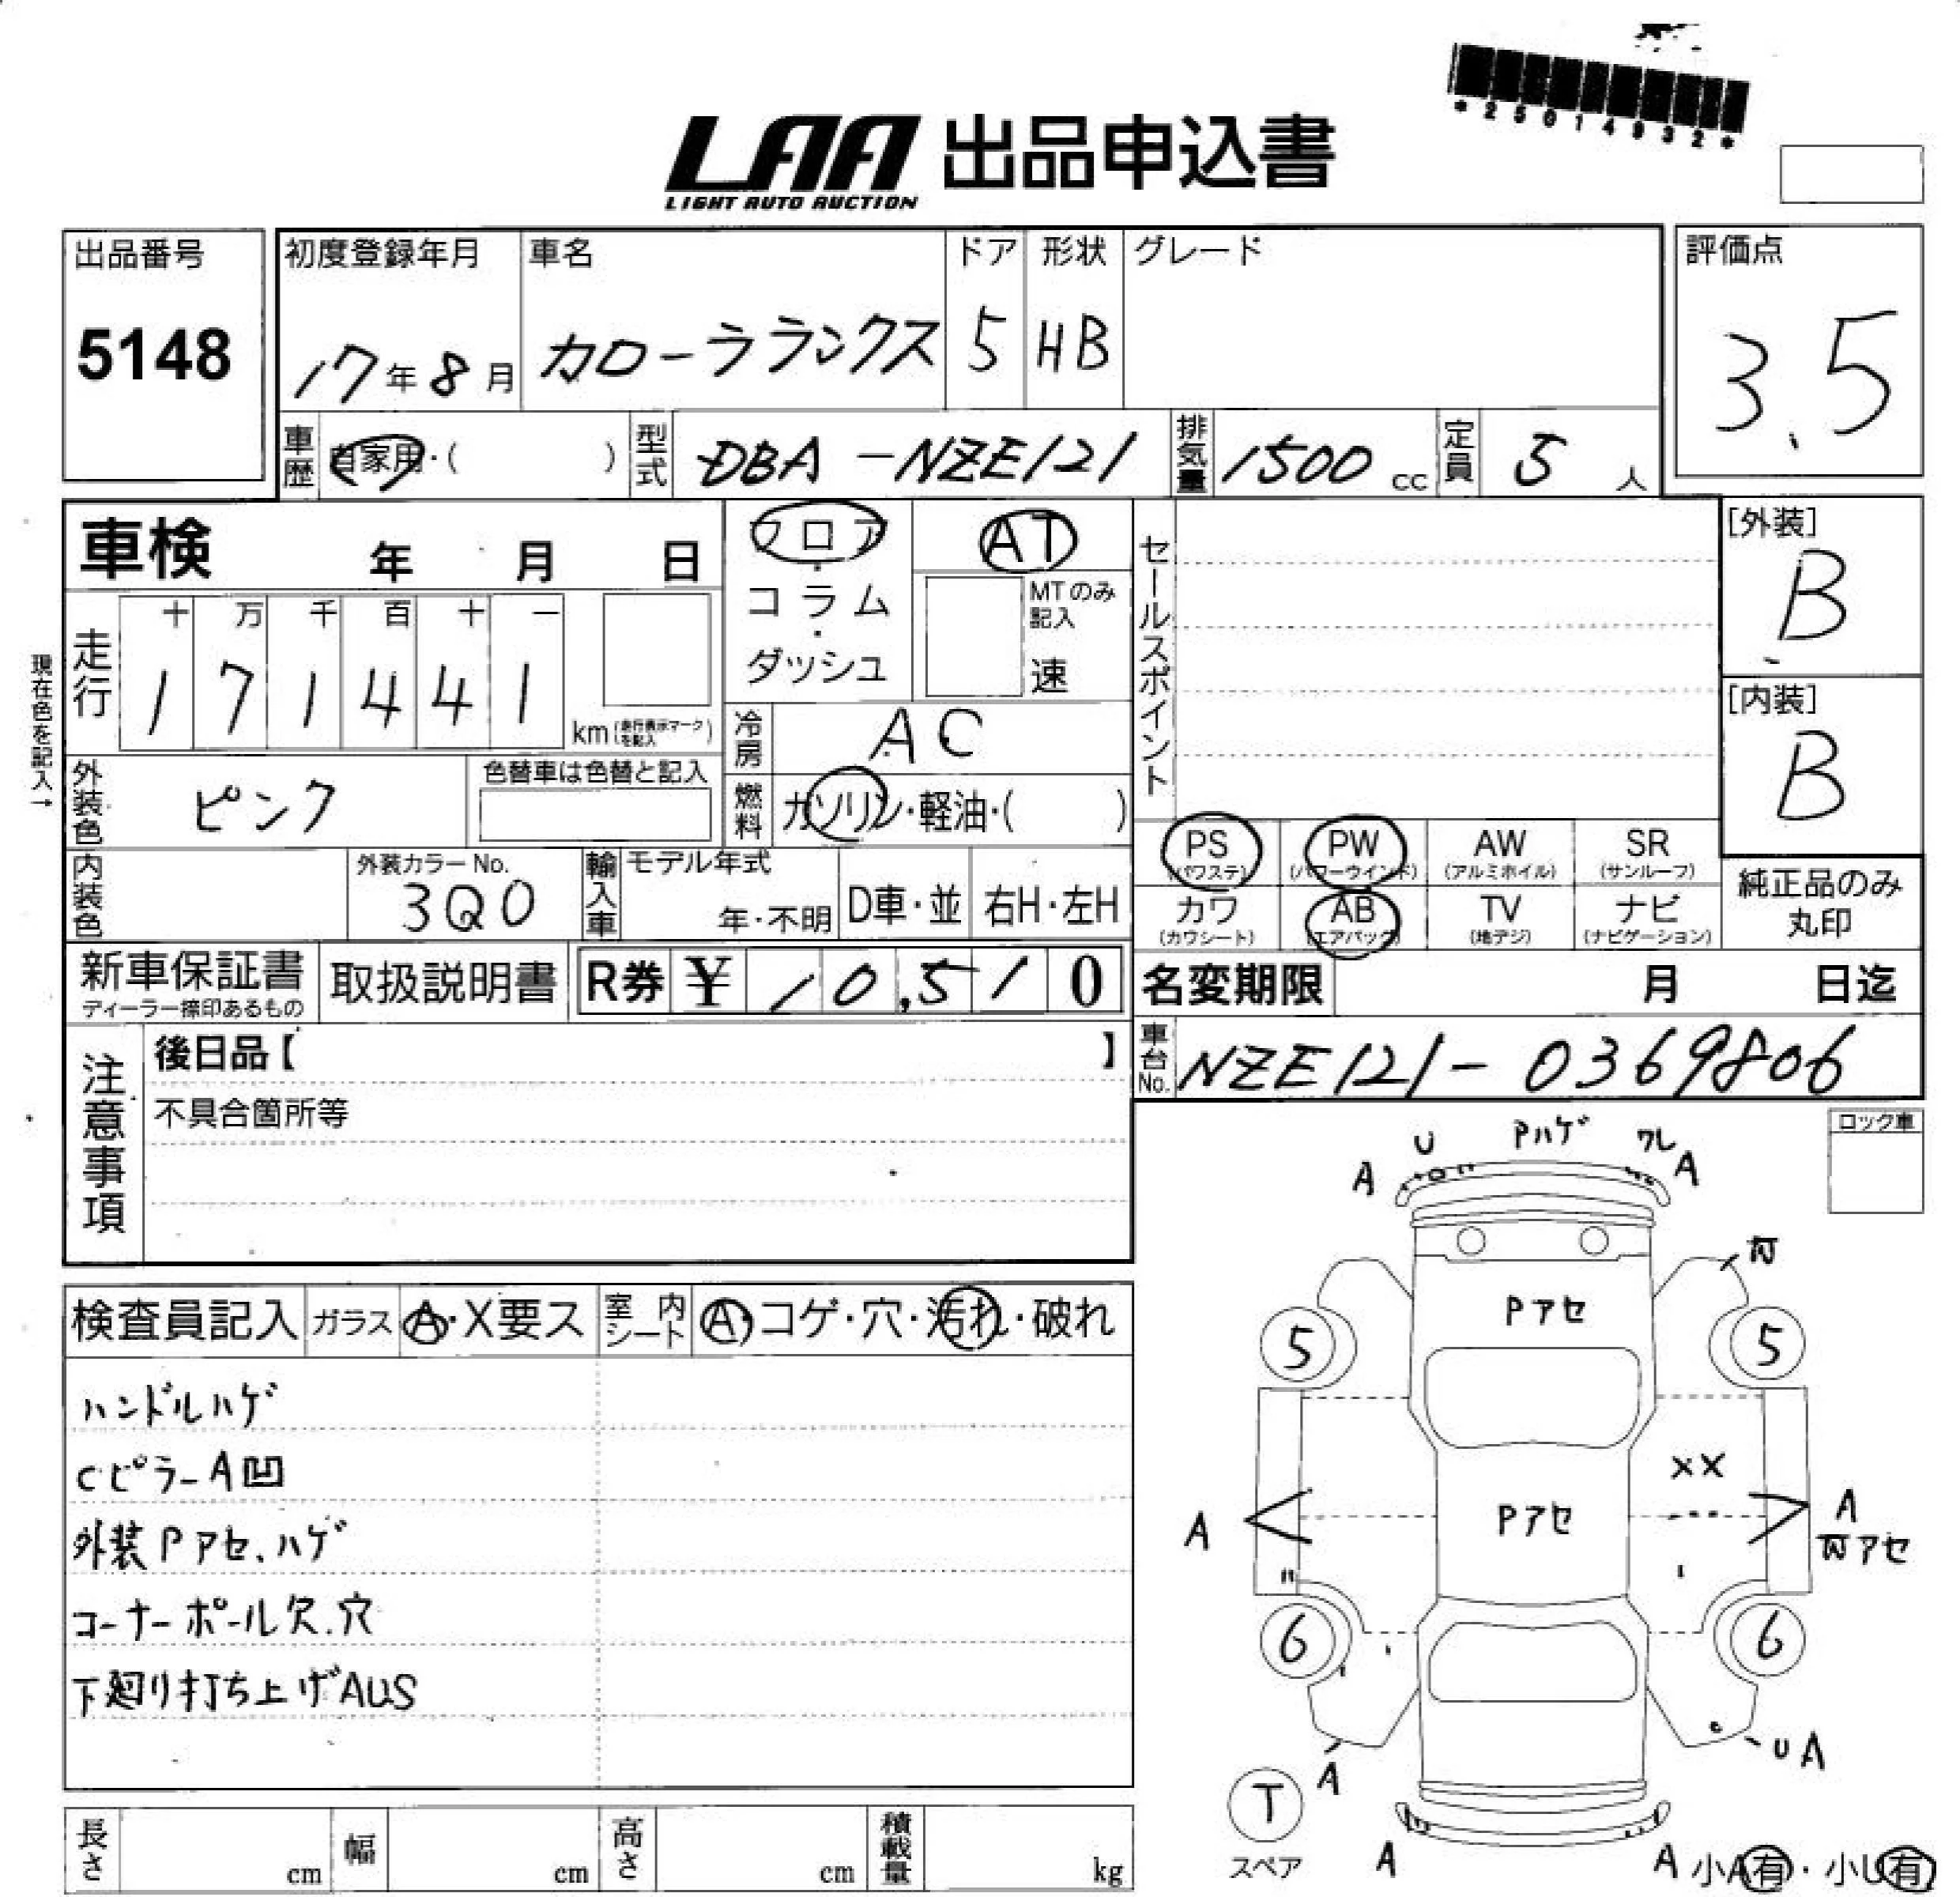 *25014932*
LAA 出品申込書
LIGHT AUTO AUCTION
出品番号
5148
初度登録年月
17年8月
車名
カローラランクス
ドア
5
形状
HB
グレード
評価点
3.5
車歴
自家用・( )
型式
DBA-NZE121
排気量
1500 cc
定員
5 人
車検 年 月 日
フロア・コラム・ダッシュ
AT
MTのみ記入
速
セールスポイント
[外装]
B
[内装]
B
現在色を記入→
走行
十 万 千 百 十 一
1 7 1 4 4 1
km (走行表示マークを記入)
冷房
AC
外装色
ピンク
色替車は色替と記入
燃料
ガソリン・軽油・( )
PS (パワステ)
PW (パワーウインド)
AW (アルミホイル)
SR (サンルーフ)
カワ (カワシート)
AB (エアバック)
TV (地デジ)
ナビ (ナビゲーション)
純正品のみ
丸印
内装色
外装カラーNo.
3Q0
輸入車
モデル年式
年・不明
D車・並
右H・左H
新車保証書
ディーラー捺印あるもの
取扱説明書
R券 ¥ 10,510
名変期限 月 日迄
車台No.
NZE121-0369806
注意事項
後日品【 】
不具合箇所等
ロック車
検査員記入
ガラス
A・X要ス
室内シート
A・コゲ・穴・汚れ・破れ
ハンドルハゲ
CピラーA凹
外装Pアセ、ハゲ
コーナーポール欠.穴
下廻り打ち上げAUS
U Pハゲ ワレ
A A
Pアセ
5 5
XX
A Pアセ A
アセ
6 6
U A
A
T
スペア
A A
小A有・小U有
長さ cm
幅 cm
高さ cm
積載量 kg